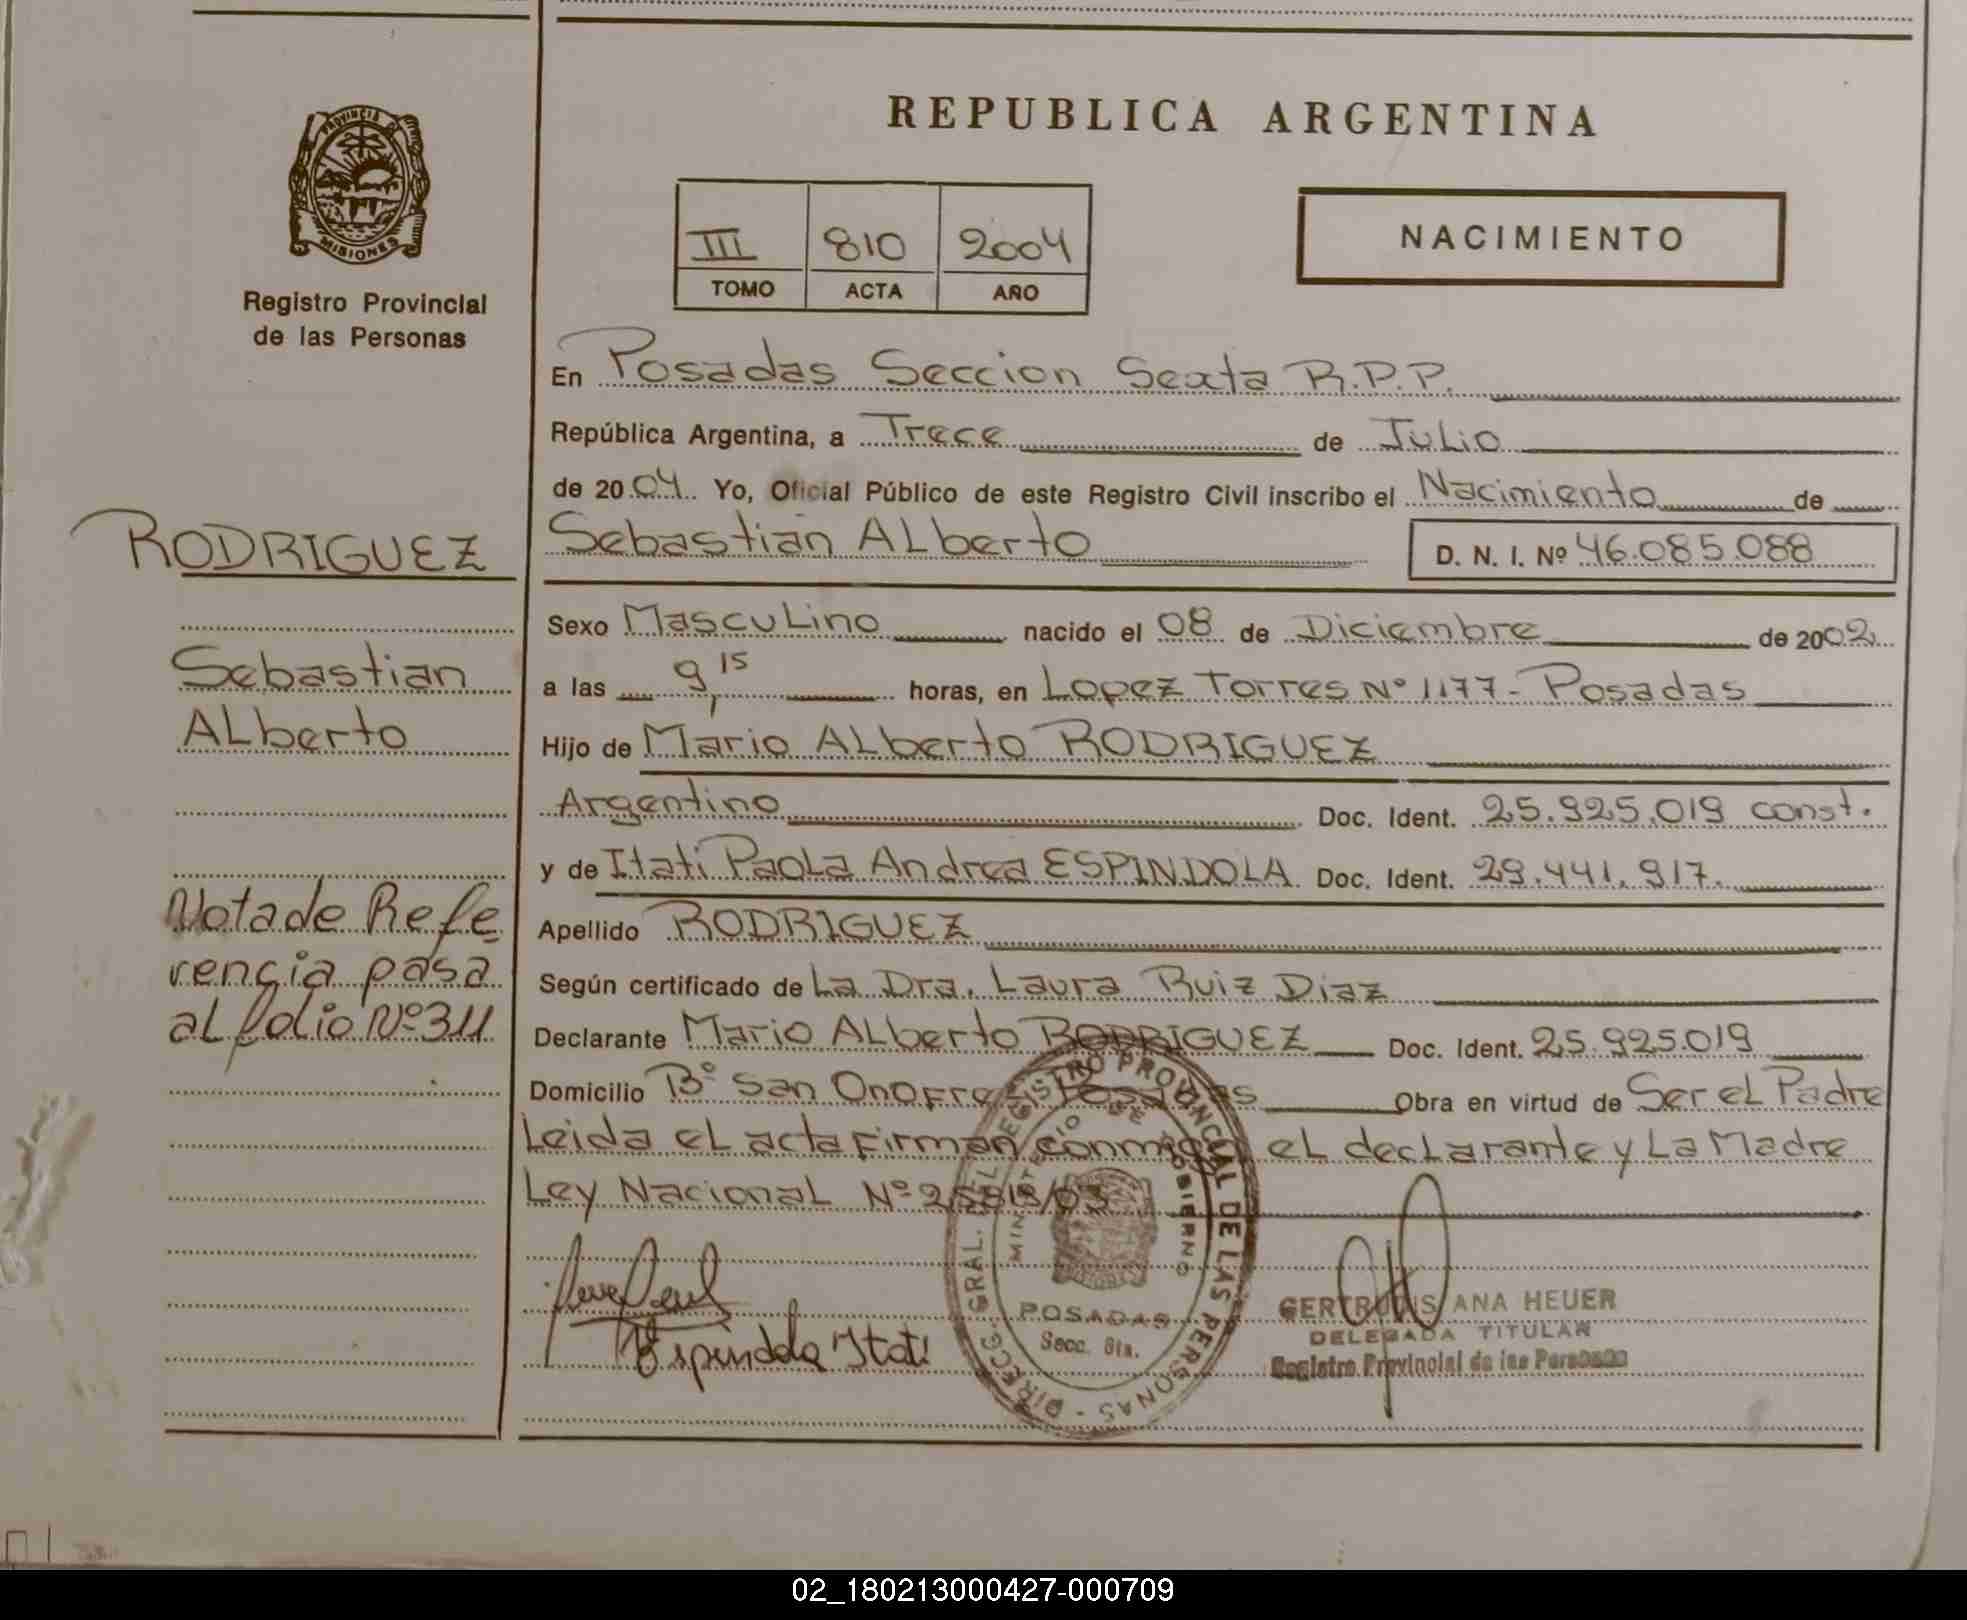 REPUBLICA ARGENTINA
PROVINCIA DE MISIONES
Registro Provincial
de las Personas
III 810 2004
TOMO ACTA AÑO
NACIMIENTO
En Posadas Seccion Sexta R.P.P.
República Argentina, a Trece de Julio
de 2004. Yo, Oficial Público de este Registro Civil inscribo el Nacimiento de
RODRIGUEZ
Sebastian ALberto D. N. I. Nº 46.085.088
Sexo Masculino nacido el 08 de Diciembre de 2002
Sebastian
ALberto
a las 9,15 horas, en Lopez Torres Nº 1177 - Posadas
Hijo de Mario ALberto RODRIGUEZ
Argentino Doc. Ident. 25.925.019 const.
y de Itati Paola Andrea ESPINDOLA Doc. Ident. 29.441.917.
Nota de Refe
rencia pasa
al folio Nº 311
Apellido RODRIGUEZ
Según certificado de La Dra. Laura Ruiz Diaz
Declarante Mario ALberto RODRIGUEZ Doc. Ident. 25.925.019
Domicilio Bº San Onofre Posadas Obra en virtud de Ser el Padre
Leida el acta Firman conmigo el declarante y La Madre
Ley Nacional Nº 25819/03
Espindola Itati
DIRECC. GRAL. DEL REGISTRO PROVINCIAL DE LAS PERSONAS
MINISTERIO DE GOBIERNO
POSADAS
Secc. 6ta.
GERTRUDIS ANA HEUER
DELEGADA TITULAR
Registro Provincial de las Personas
02_180213000427-000709